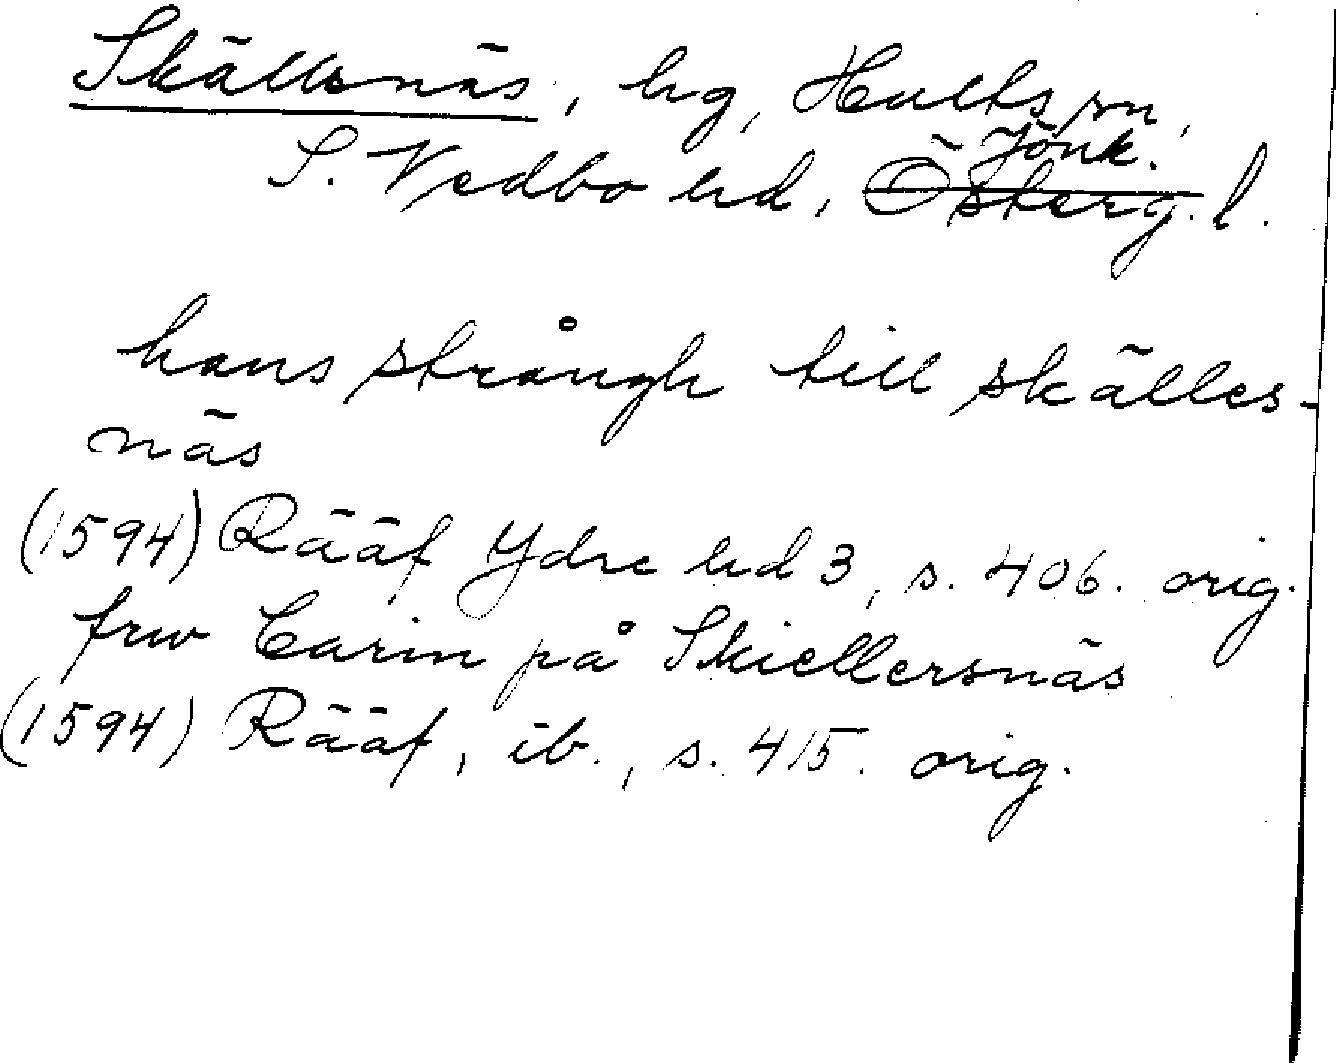 Skällsnäs, hg, Hults sn,
S. Vedbo hd, Österg. Jönk. l.
hans strångh till skälles-
näs
(1594) Rääf Ydre hd 3, s. 406. orig.
frw Carin på Skiellersnäs
(1594) Rääf, ib., s. 415. orig.